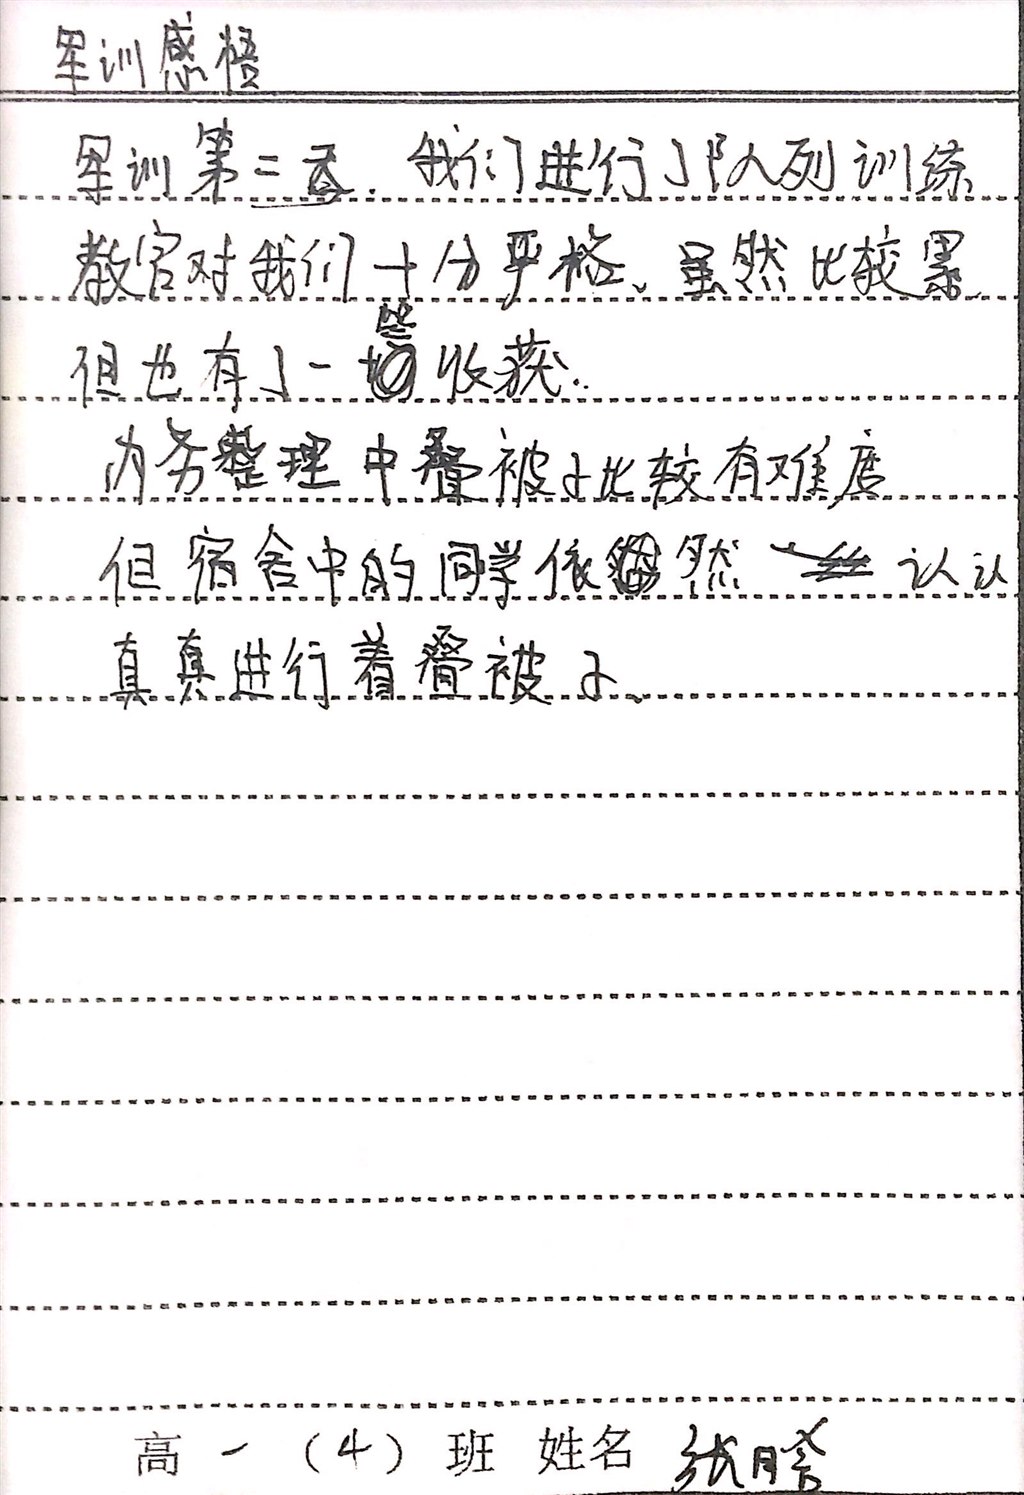 军训感悟
军训第二天. 我们进行了队列训练
教官对我们十分严格、虽然比较累
但也有了一些收获.
内务整理中叠被子比较有难度
但宿舍中的同学依然认认
真真进行着叠被子、
高一(4)班 姓名 张